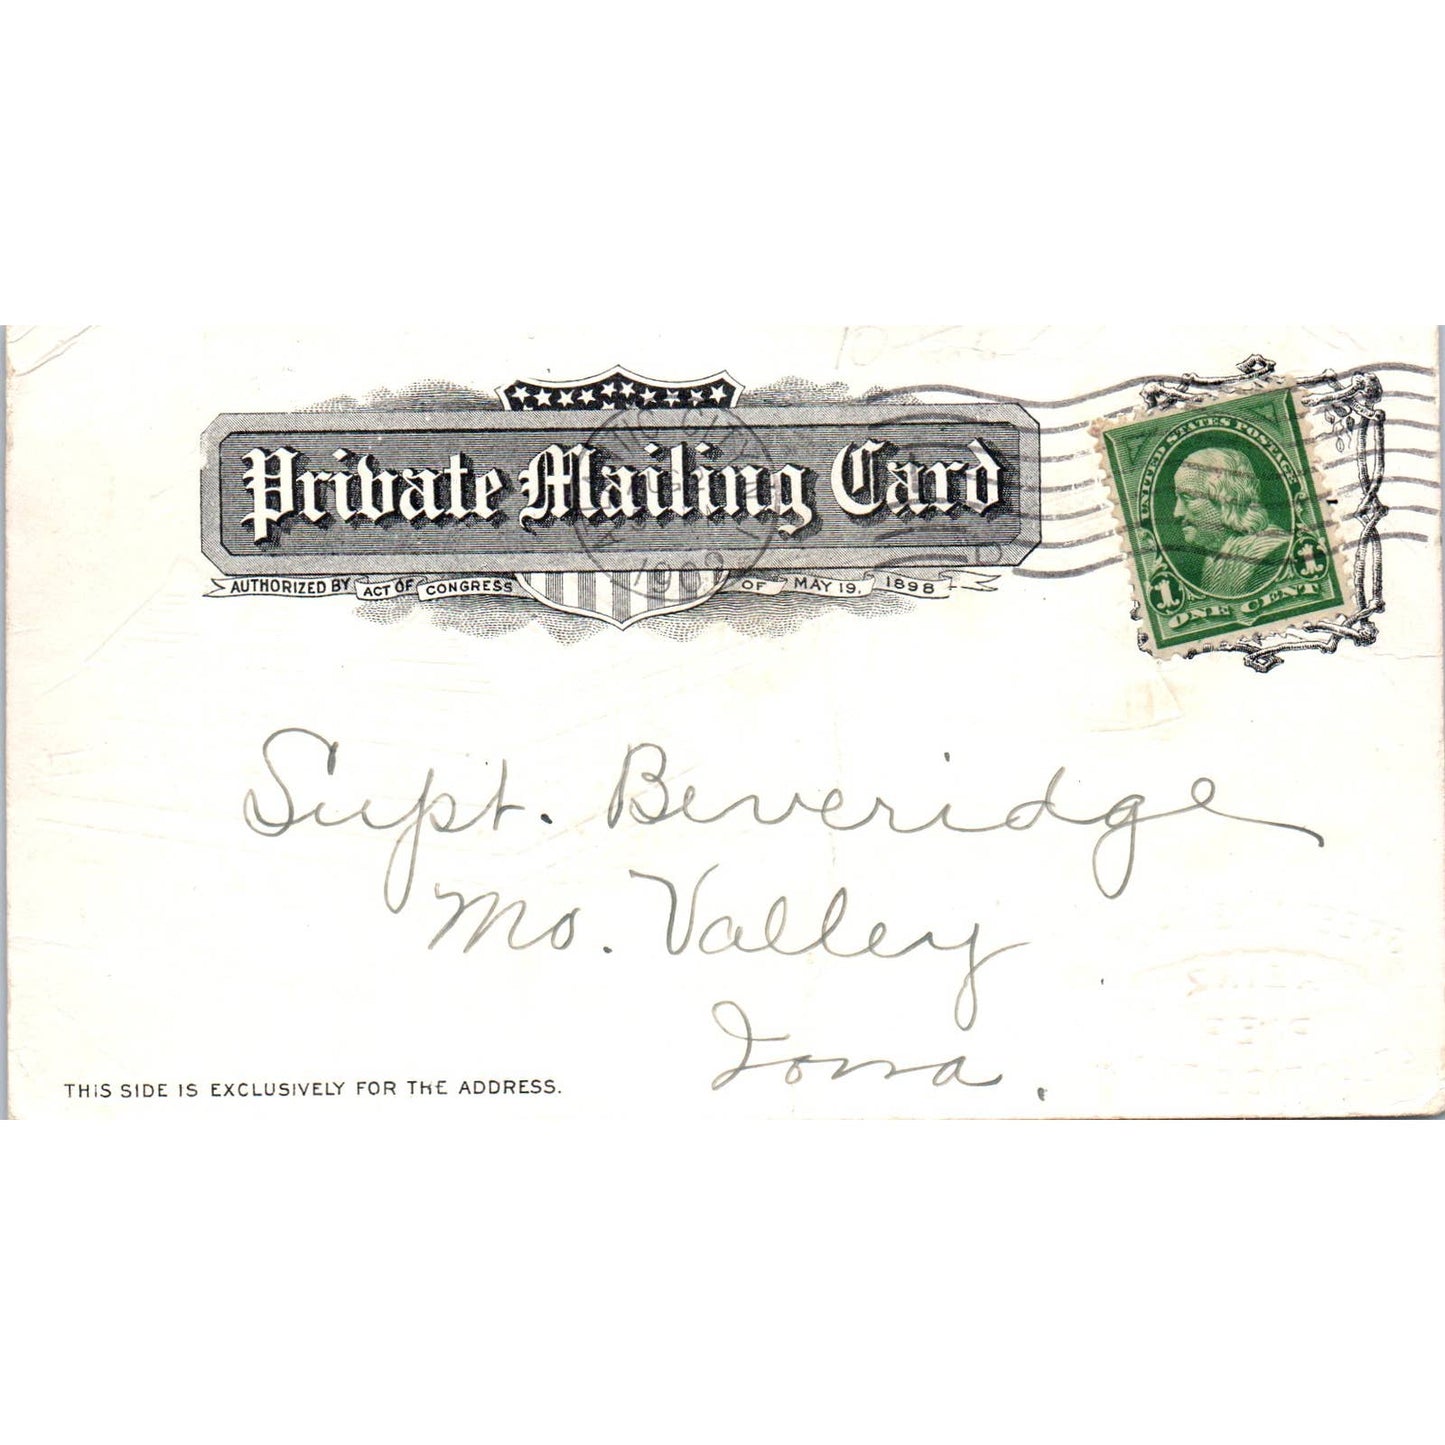 Private Mailing Card
AUTHORIZED BY ACT OF CONGRESS OF MAY 19, 1898
CITY
AUG
1902
UNITED STATES POSTAGE
1 1
ONE CENT
Supt. Beveridge
Mo. Valley
Iowa.
THIS SIDE IS EXCLUSIVELY FOR THE ADDRESS.